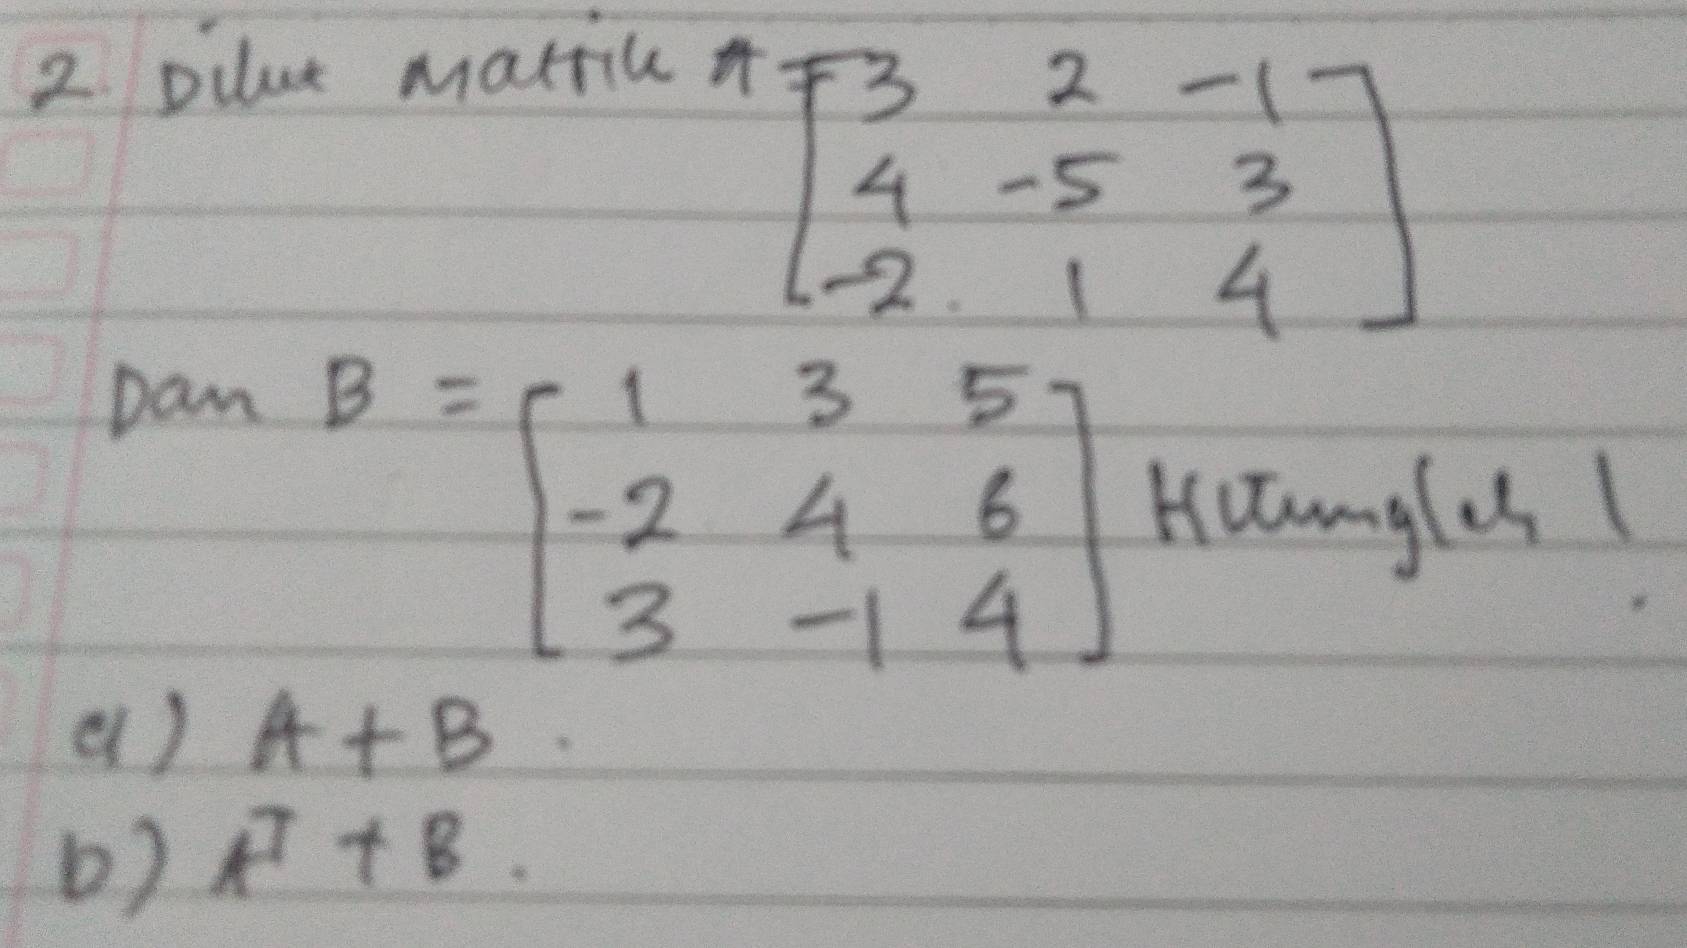 2 Diket Matrik A = [ 3 2 -1 ]
4 -5 3
-2 1 4
Dan B = [ 1 3 5 ]
-2 4 6 Hitunglah !
3 -1 4
a) A + B .
b) Aᵀ + B .